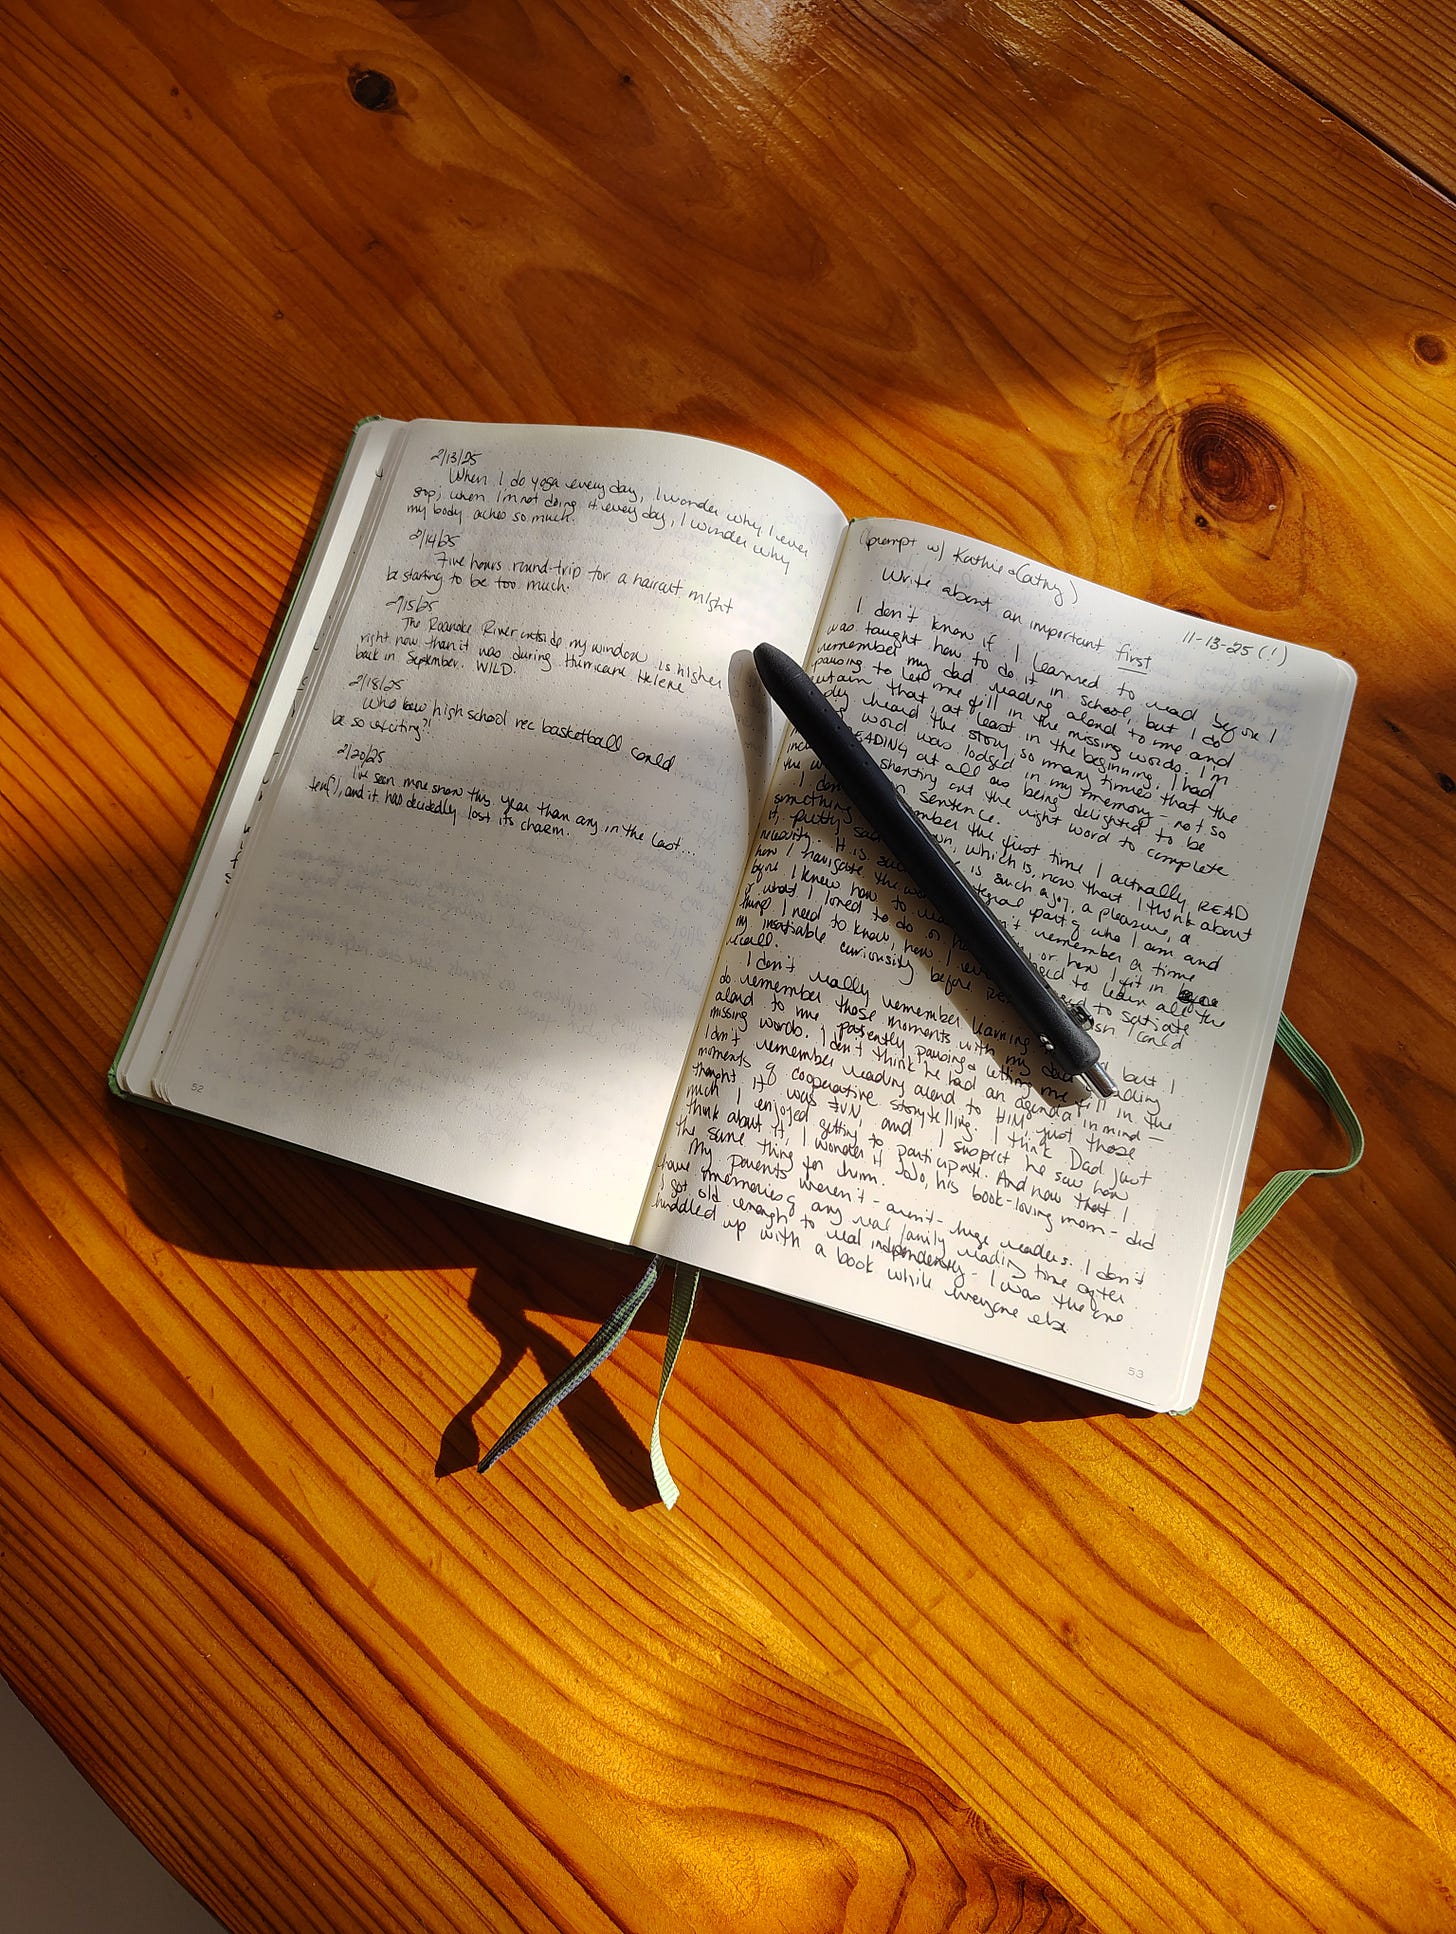 2/13/25
When I do yoga every day, I wonder why I ever
stop; when I'm not doing it every day, I wonder why
my body aches so much.
2/14/25
Five hours round-trip for a haircut might
be starting to be too much.
2/15/25
The Roanoke River outside my window is higher
right now than it was during Hurricane Helene
back in September. WILD.
2/18/25
Who knew high school rec basketball could
be so exciting?!
2/20/25
I've seen more snow this year than any in the last...
ten(?), and it has decidedly lost its charm.
52
(prompt w/ Kathie + Cathy)
11-13-25 (!)
Write about an important first
I don't know if I learned to read before I
was taught how to do it in school, but I do
remember my dad reading aloud to me and
pausing to let me fill in the missing words. I'm
certain that, at least in the beginning, I had
heard the story so many times that the
word was lodged in my memory - not so
READING at all as being delighted to be
shouting out the right word to complete
the sentence.
I don't remember the first time I actually READ
something own, which is, now that I think about
it, pretty is such a joy, a pleasure, a
necessity. It is integral part of who I am and
how I navigate the don't remember a time
before I knew how to or how I fit in
what I loved to do or to learn all the
things I need to know, how I to satiate
my insatiable curiosity before I could
recall.
I don't really remember learning but I
do remember those moments with my dad reading
aloud to me, patiently pausing + letting me fill in the
missing words. I don't think he had an agenda in mind -
I don't remember reading aloud to HIM, just those
moments of cooperative storytelling. I think Dad just
thought it was FUN, and I suspect he saw how
much I enjoyed getting to participate. And now that I
think about it, I wonder if JoJo, his book-loving mom - did
the same thing for him.
My parents weren't - aren't - huge readers. I don't
have memories of any real family reading time after
I got old enough to read independently - I was the one
huddled up with a book while everyone else
53